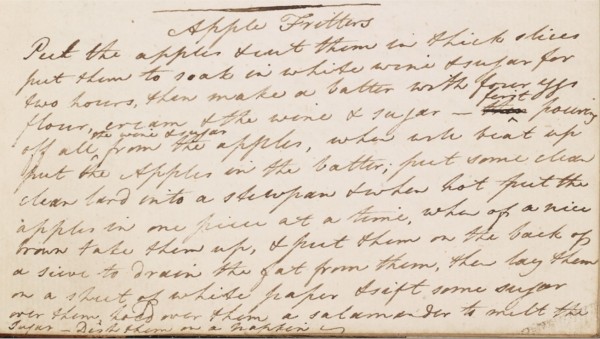 Apple Fritters
Peel the apples & cut them in thick slices
put them to soak in white wine & sugar for
two hours, then make a batter with four eggs
flour, cream & the wine & sugar — first pouring
off all the wine & sugar from the apples, when well beat up
put the Apples in the batter; put some clean
clean lard into a stewpan & when hot put the
apples in one piece at a time, when of a nice
brown take them up, & put them on the back of
a sieve to drain the fat from them, then lay them
on a sheet of white paper & sift some sugar
over them, hold over them a salamander to melt the
sugar — Dish them on a napkin